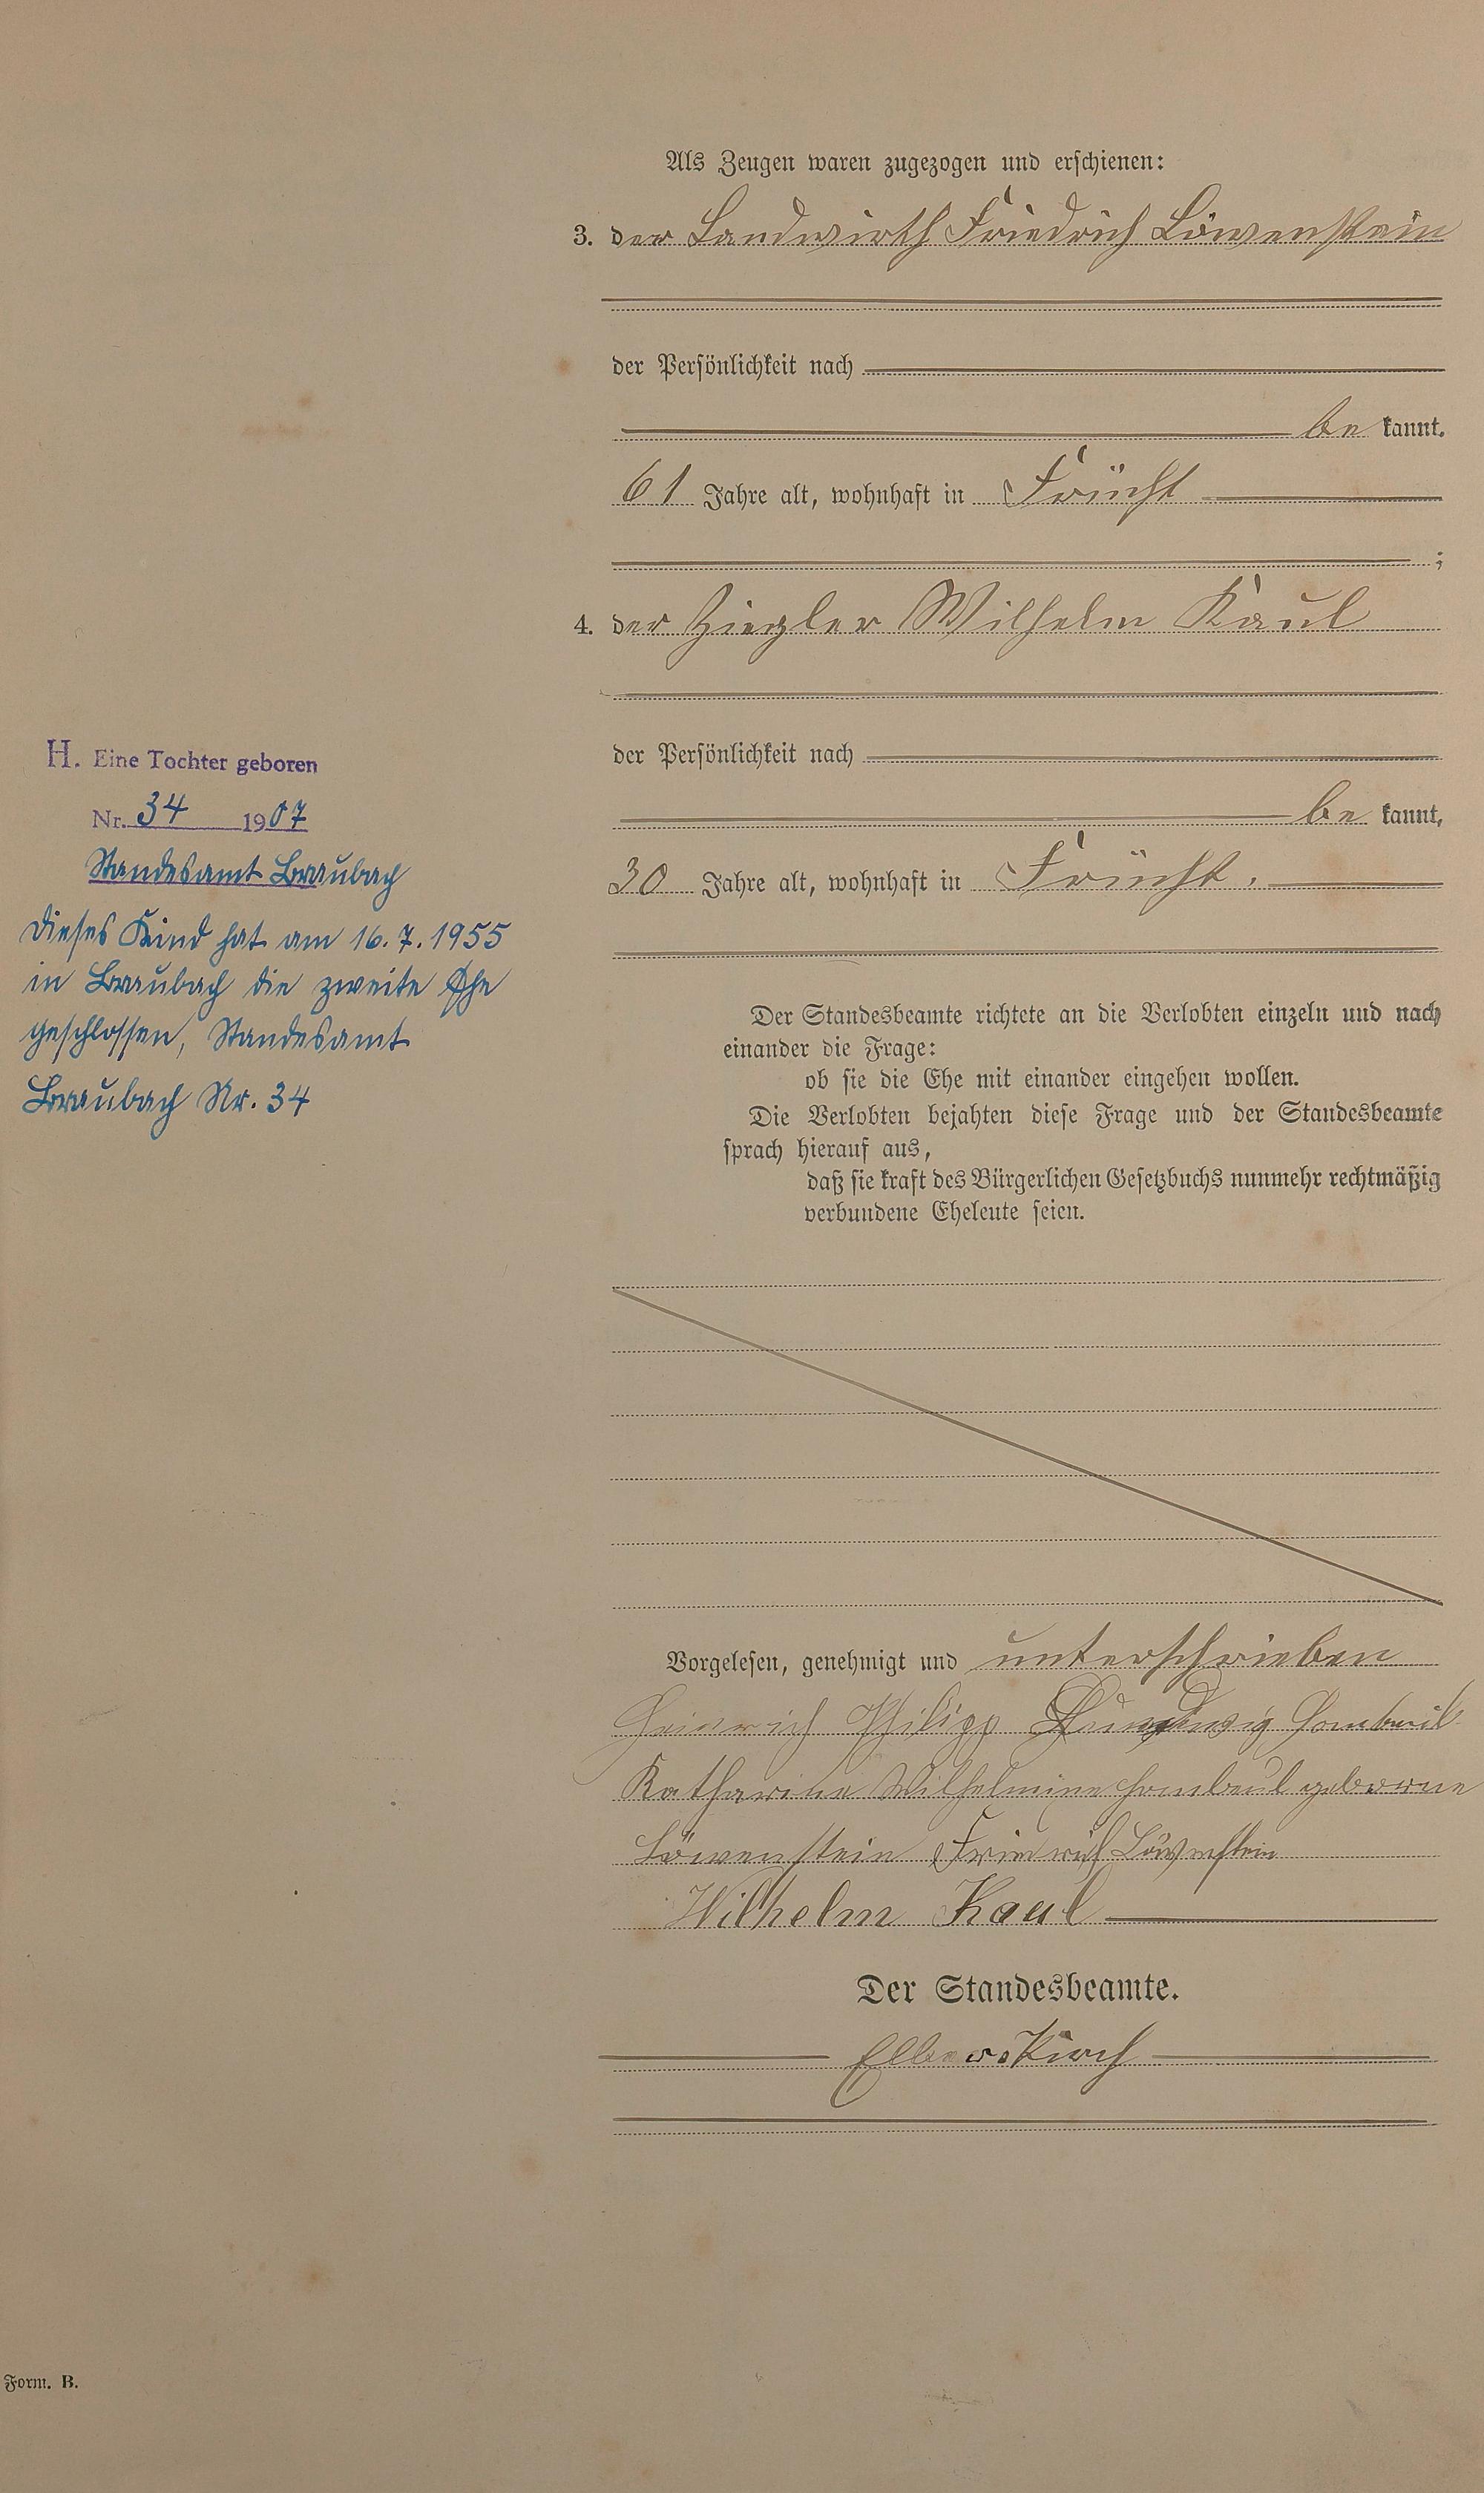 Als Zeugen waren zugezogen und erschienen:
3. der Landwirth Friedrich Löwenstein
der Persönlichkeit nach
be kannt.
61 Jahre alt, wohnhaft in Frücht
;
4. der Ziegler Wilhelm Kaul
der Persönlichkeit nach
be kannt,
30 Jahre alt, wohnhaft in Frücht.
H. Eine Tochter geboren
Nr. 34 1907
Standesamt Braubach
Dieses Kind hat am 16.7.1955
in Braubach die zweite Ehe
geschlossen, Standesamt
Braubach Nr. 34
Der Standesbeamte richtete an die Verlobten einzeln und nach
einander die Frage:
ob sie die Ehe mit einander eingehen wollen.
Die Verlobten bejahten diese Frage und der Standesbeamte
sprach hierauf aus,
daß sie kraft des Bürgerlichen Gesetzbuchs nunmehr rechtmäßig
verbundene Eheleute seien.
Vorgelesen, genehmigt und unterschrieben
Heinrich Philipp Hombeul
Katharina Wilhelmine Hombeul geborne
Löwenstein Friedrich Löwenstein
Wilhelm Kaul
Der Standesbeamte.
Form. B.